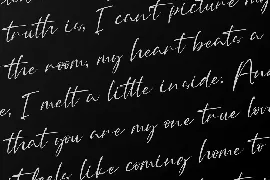 truth is, I can't picture my
the room, my heart beats a
e, I melt a little inside. And
that you are my one true lov
t feels like coming home to